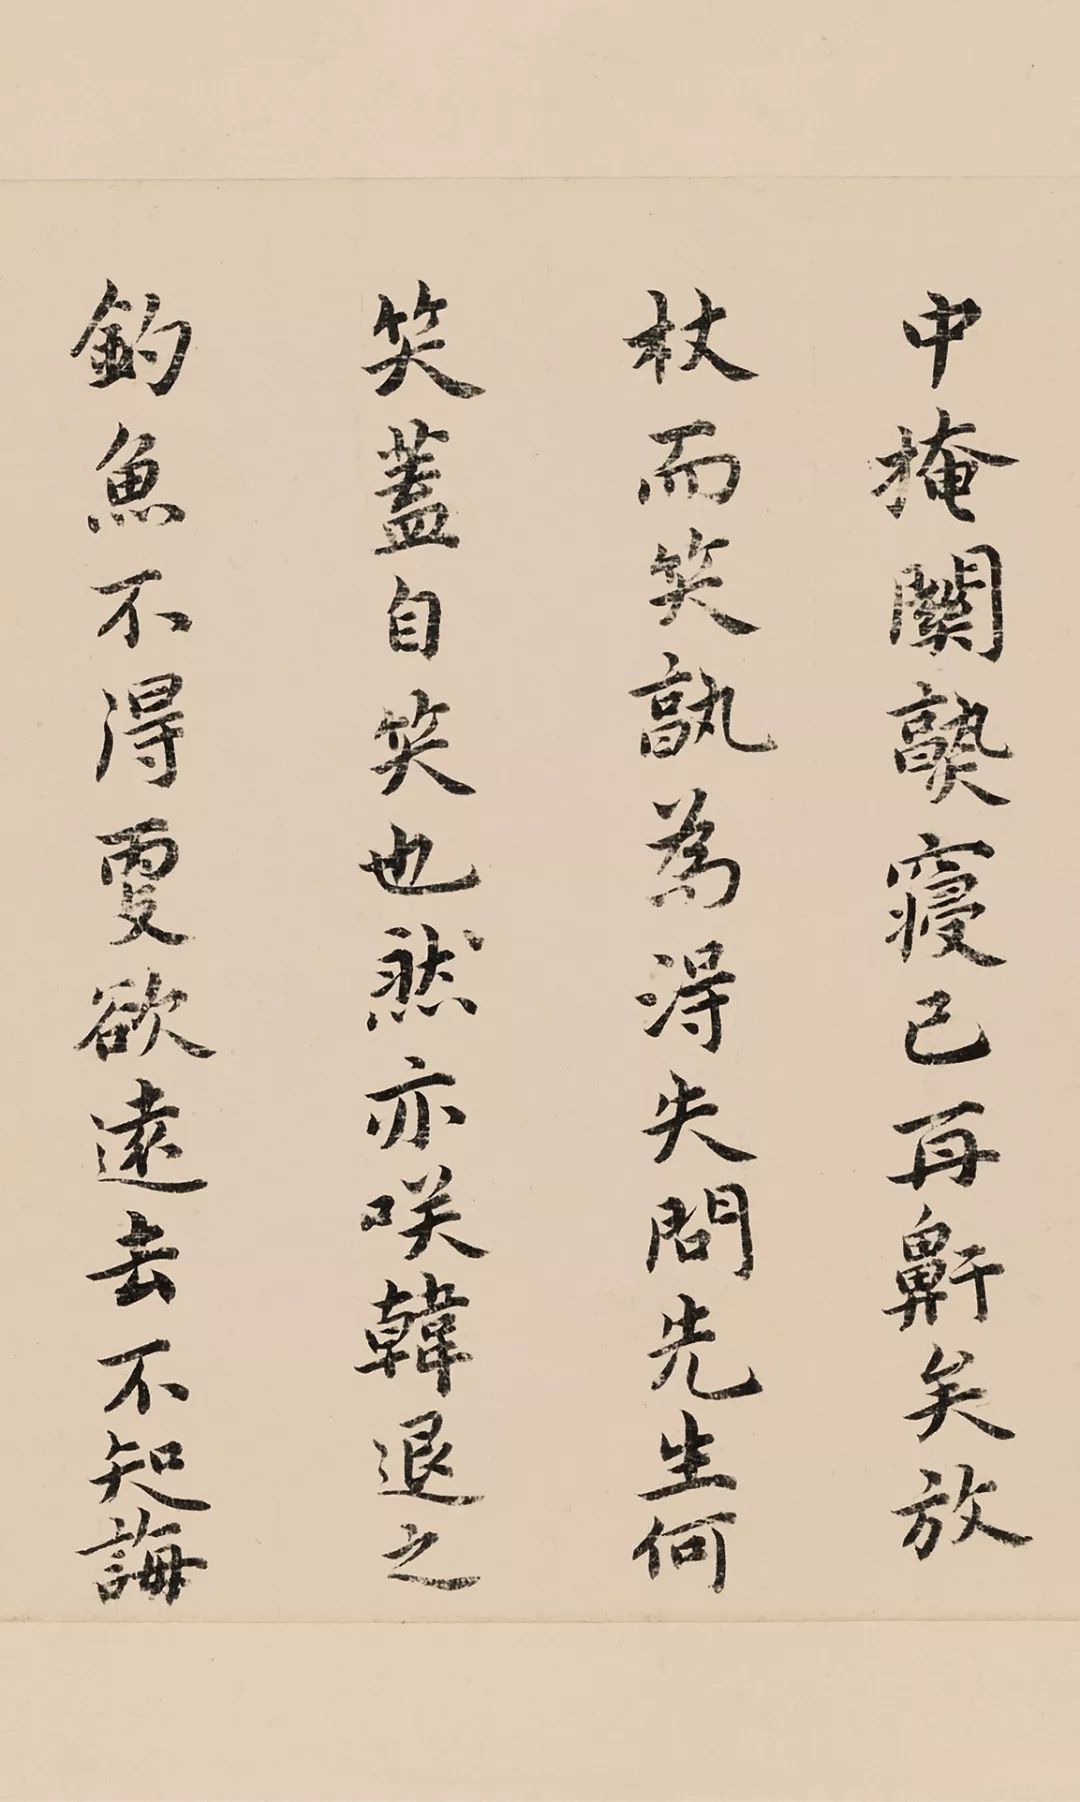 中掩關𤍨寢已再鼾矣放
杖而笑孰為得失問先生何
笑蓋自笑也然亦咲韓退之
釣魚不得更欲遠去不知誨